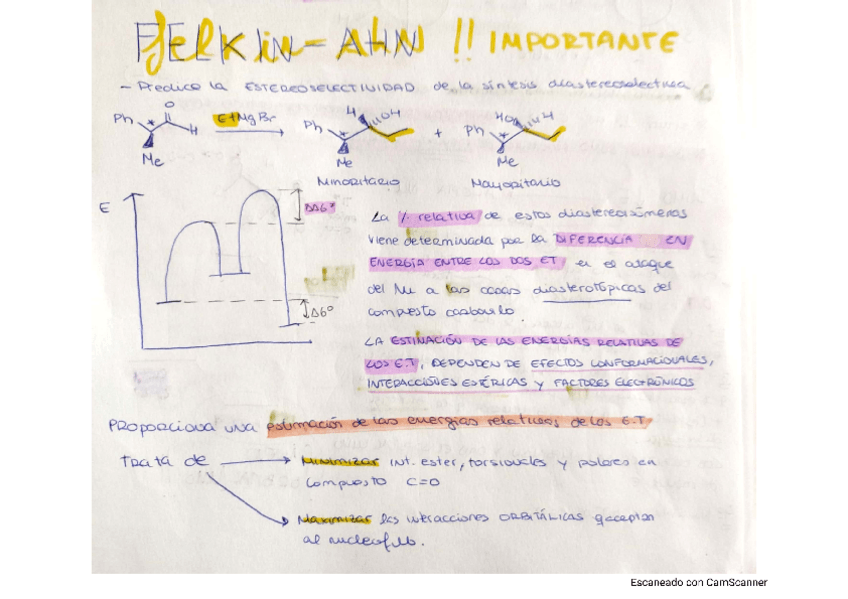 FELKIN-AHN !! IMPORTANTE
- Predice la ESTEREOSELECTIVIDAD de la síntesis diastereoselectiva
Ph O H Me EtMgBr Ph * H OH Me + Ph * HO H Me
Minoritario Mayoritario
E
ΔΔG≠
ΔG°
La % relativa de estos diastereoisómeros
viene determinada por la DIFERENCIA EN
ENERGÍA ENTRE LOS DOS ET en el ataque
del Nu a las caras diasterotópicas del
compuesto carbonilo.
LA ESTIMACIÓN DE LAS ENERGÍAS RELATIVAS DE
LOS E.T, DEPENDEN DE EFECTOS CONFORMACIONALES,
INTERACCIONES ESTÉRICAS Y FACTORES ELECTRÓNICOS
PROPORCIONA UNA estimación de las energias relativas de los E.T
TRATA DE → Minimizar int. ester, torsionales y polares en
compuesto C=O
Maximizar las interacciones ORBITÁLICAS q aceptan
al nucleofilo.
Escaneado con CamScanner